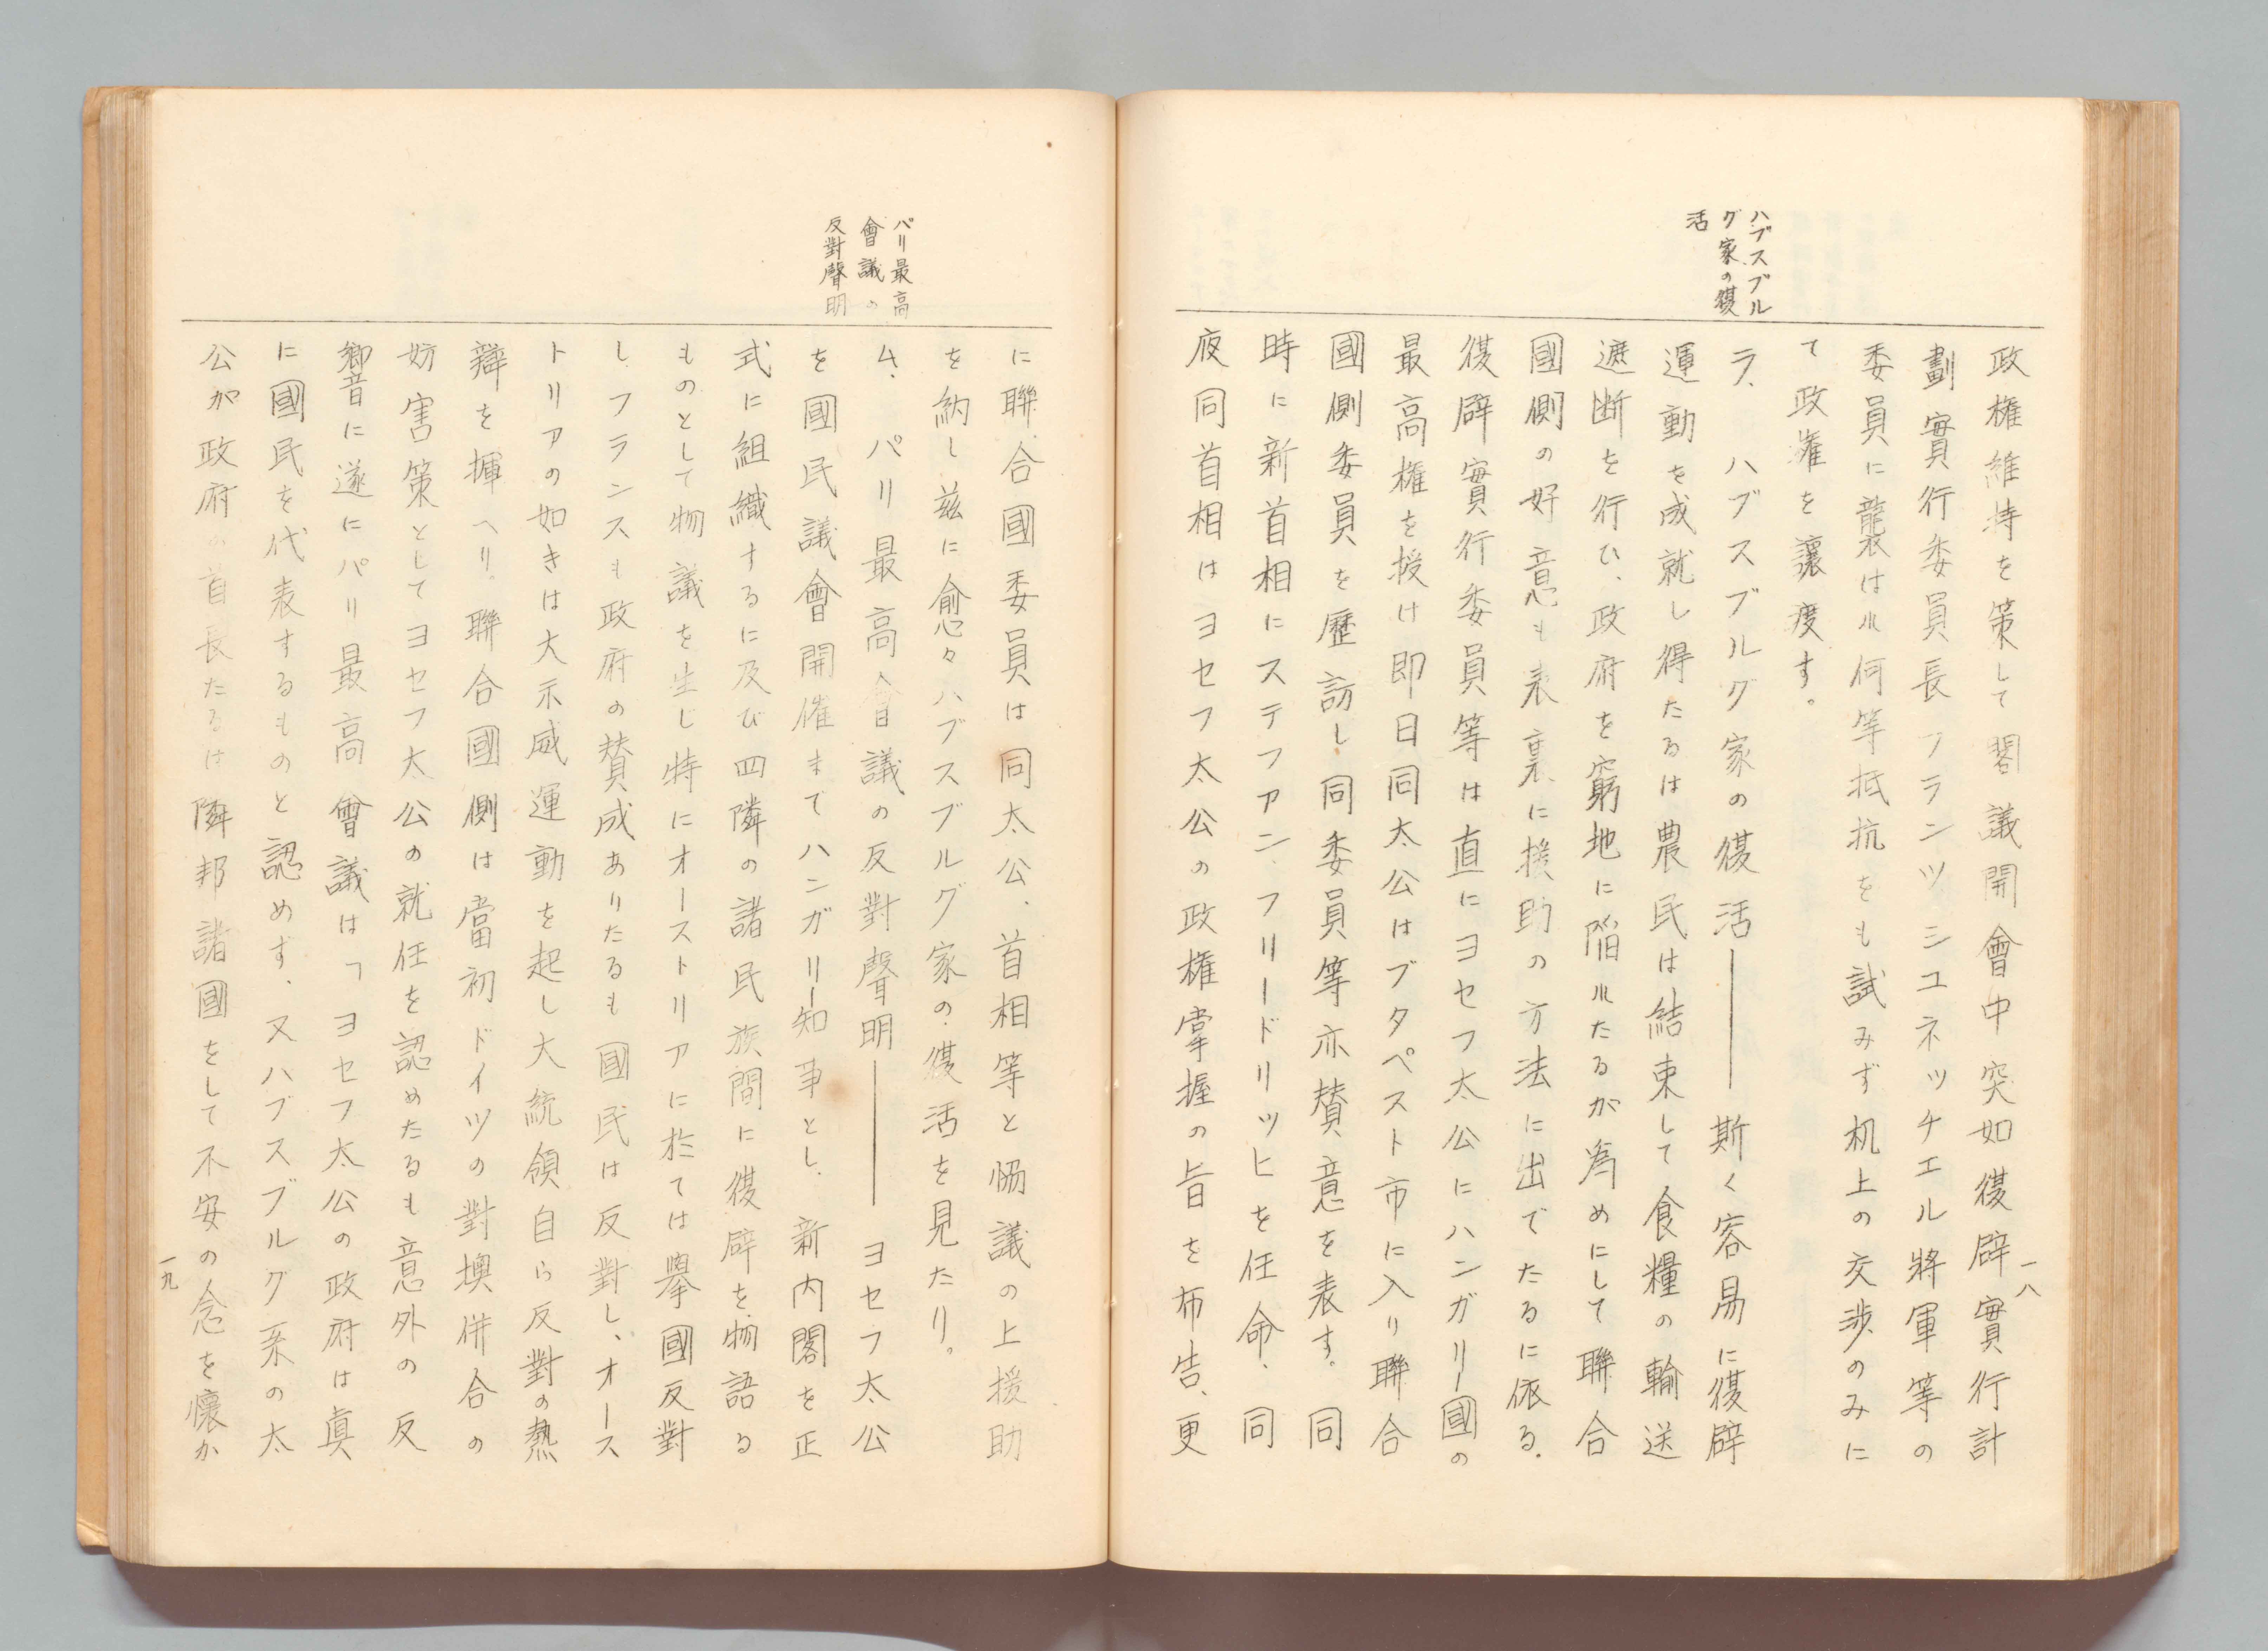 一八
ハブスブル
グ家の復
活
政権維持を策して閣議開會中突如復辟實行計
劃實行委員長フランツシユネッチエル將軍等の
委員に襲はれ何等抵抗をも試みず机上の交渉のみに
て政権を讓度す。
ラ、ハブスブルグ家の復活――斯く容易に復辟
運動を成就し得たるは農民は結束して食糧の輸送
遮断を行ひ、政府を窮地に陥れたるが為めにして聯合
國側の好意も表裏に援助の方法に出でたるに依る。
復辟實行委員等は直にヨセフ太公にハンガリー國の
最高権を授け即日同太公はブタペスト市に入り聯合
國側委員を歷訪し同委員等亦賛意を表す。同
時に新首相にステファン、フリードリッヒを任命、同
夜同首相はヨセフ太公の政権掌握の旨を布告、更
パリ最高
會議の
反對聲明
に聯合國委員は同太公、首相等と協議の上援助
を納し茲に愈々ハブスブルグ家の復活を見たり。
ム、パリ最高會議の反對聲明――ヨセフ太公
を國民議會開催までハンガリー知事とし、新内閣を正
式に組織するに及び四隣の諸民族間に復辟を物語る
ものとして物議を生じ特にオーストリアに於ては擧國反對
し、フランスも政府の賛成ありたるも國民は反對し、オース
トリアの如きは大示威運動を起し大統領自ら反對の熱
辯を揮へり。聯合國側は當初ドイツの對墺併合の
妨害策としてヨセフ太公の就任を認めたるも意外の反
響に遂にパリ最高會議は「ヨセフ太公の政府は眞
に國民を代表するものと認めず、又ハブスブルグ系の太
公が政府の首長たるは隣邦諸國をして不安の念を懷か
一九